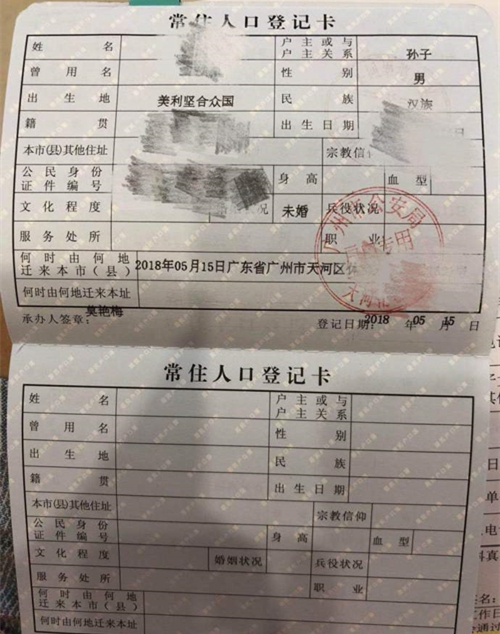 常住人口登记卡
姓名 户主或与户主关系 孙子
曾用名 性别 男
出生地 美利坚合众国 民族 汉族
籍贯 出生日期
本市(县)其他住址 宗教信仰
公民身份证件编号 身高 血型
文化程度 况 未婚 兵役状况
服务处所 职业
何时由何地迁来本市(县) 2018年05月15日广东省广州市天河区
何时由何地迁来本址
承办人签章: 莫艳梅 登记日期: 2018年05月15日
广州市公安局
户口专用
天河
常住人口登记卡
姓名 户主或与户主关系
曾用名 性别
出生地 民族
籍贯 出生日期
本市(县)其他住址 宗教信仰
公民身份证件编号 身高 血型
文化程度 婚姻状况 兵役状况
服务处所 职业
何时由何地迁来本市(县)
何时由何地迁来本址